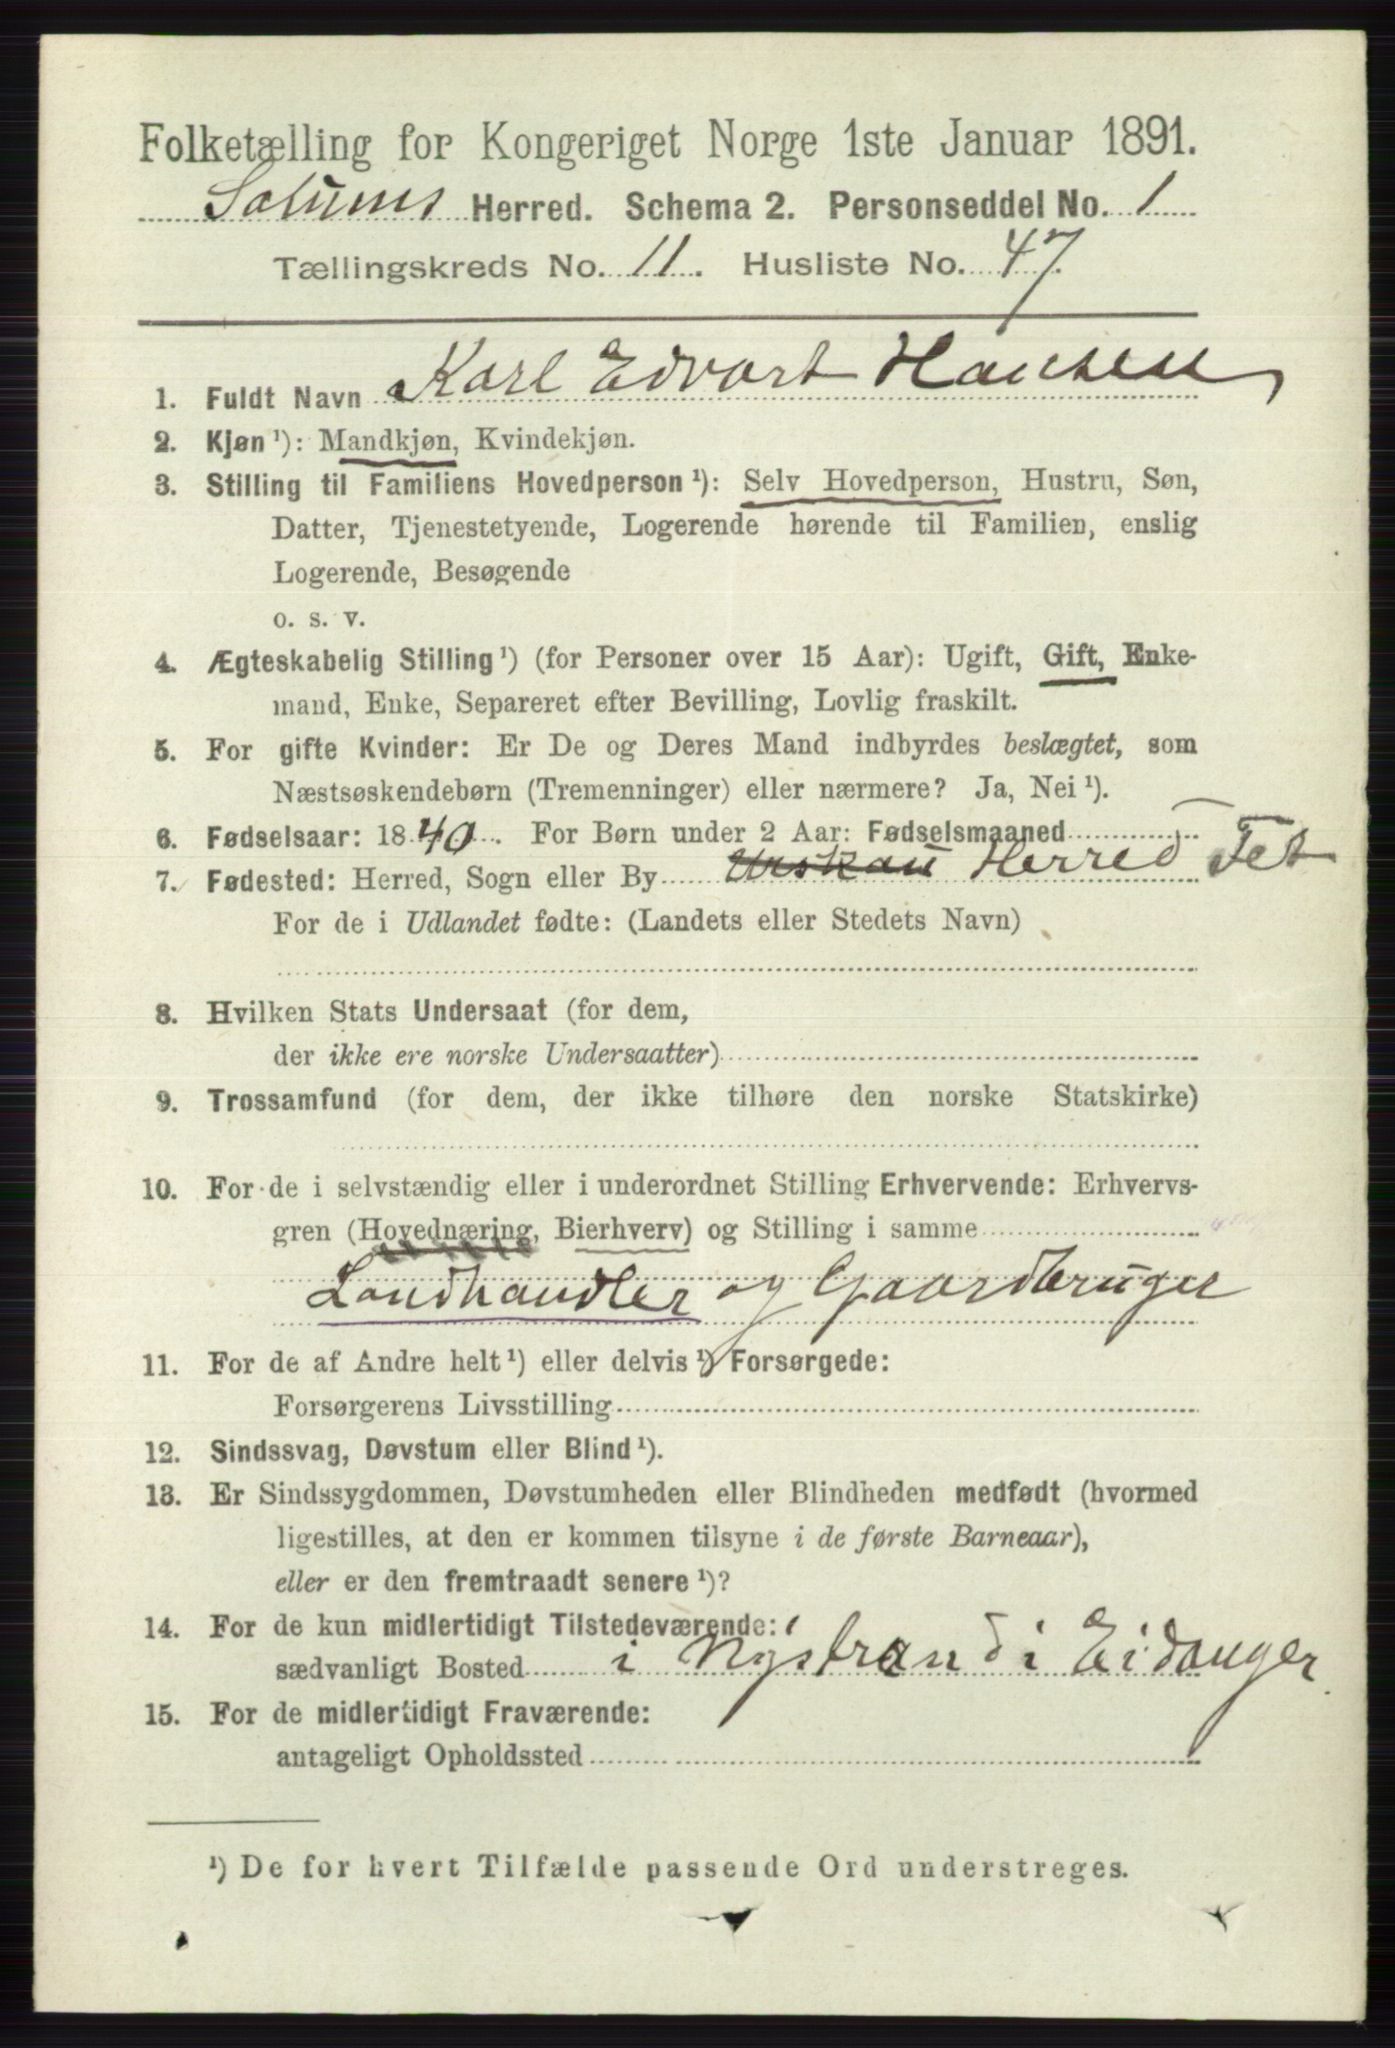 Folketælling for Kongeriget Norge 1ste Januar 1891.
Solums Herred. Schema 2. Personseddel No. 1
Tællingskreds No. 11. Husliste No. 47.
1. Fuldt Navn Karl Edvart Hansen
2. Kjøn ¹): Mandkjøn, Kvindekjøn.
3. Stilling til Familiens Hovedperson ¹): Selv Hovedperson, Hustru, Søn,
Datter, Tjenestetyende, Logerende hørende til Familien, enslig
Logerende, Besøgende
o. s. v.
4. Ægteskabelig Stilling ¹) (for Personer over 15 Aar): Ugift, Gift, Enke-
mand, Enke, Separeret efter Bevilling, Lovlig fraskilt.
5. For gifte Kvinder: Er De og Deres Mand indbyrdes beslægtet, som
Næstsøskendebørn (Tremenninger) eller nærmere? Ja, Nei ¹).
6. Fødselsaar: 1840. For Børn under 2 Aar: Fødselsmaaned
7. Fødested: Herred, Sogn eller By Urskau Herred Fet
For de i Udlandet fødte: (Landets eller Stedets Navn)
8. Hvilken Stats Undersaat (for dem,
der ikke ere norske Undersaatter)
9. Trossamfund (for dem, der ikke tilhøre den norske Statskirke)
10. For de i selvstændig eller i underordnet Stilling Erhvervende: Erhvervs-
gren (Hovednæring, Bierhverv) og Stilling i samme
Landhandler og Gaardbruger
11. For de af Andre helt ¹) eller delvis ¹) Forsørgede:
Forsørgerens Livsstilling
12. Sindssvag, Døvstum eller Blind ¹).
13. Er Sindssygdommen, Døvstumheden eller Blindheden medfødt (hvormed
ligestilles, at den er kommen tilsyne i de første Barneaar),
eller er den fremtraadt senere ¹)?
14. For de kun midlertidigt Tilstedeværende:
sædvanligt Bosted i Nystrand i Eidanger
15. For de midlertidigt Fraværende:
antageligt Opholdssted
¹) De for hvert Tilfælde passende Ord understreges.